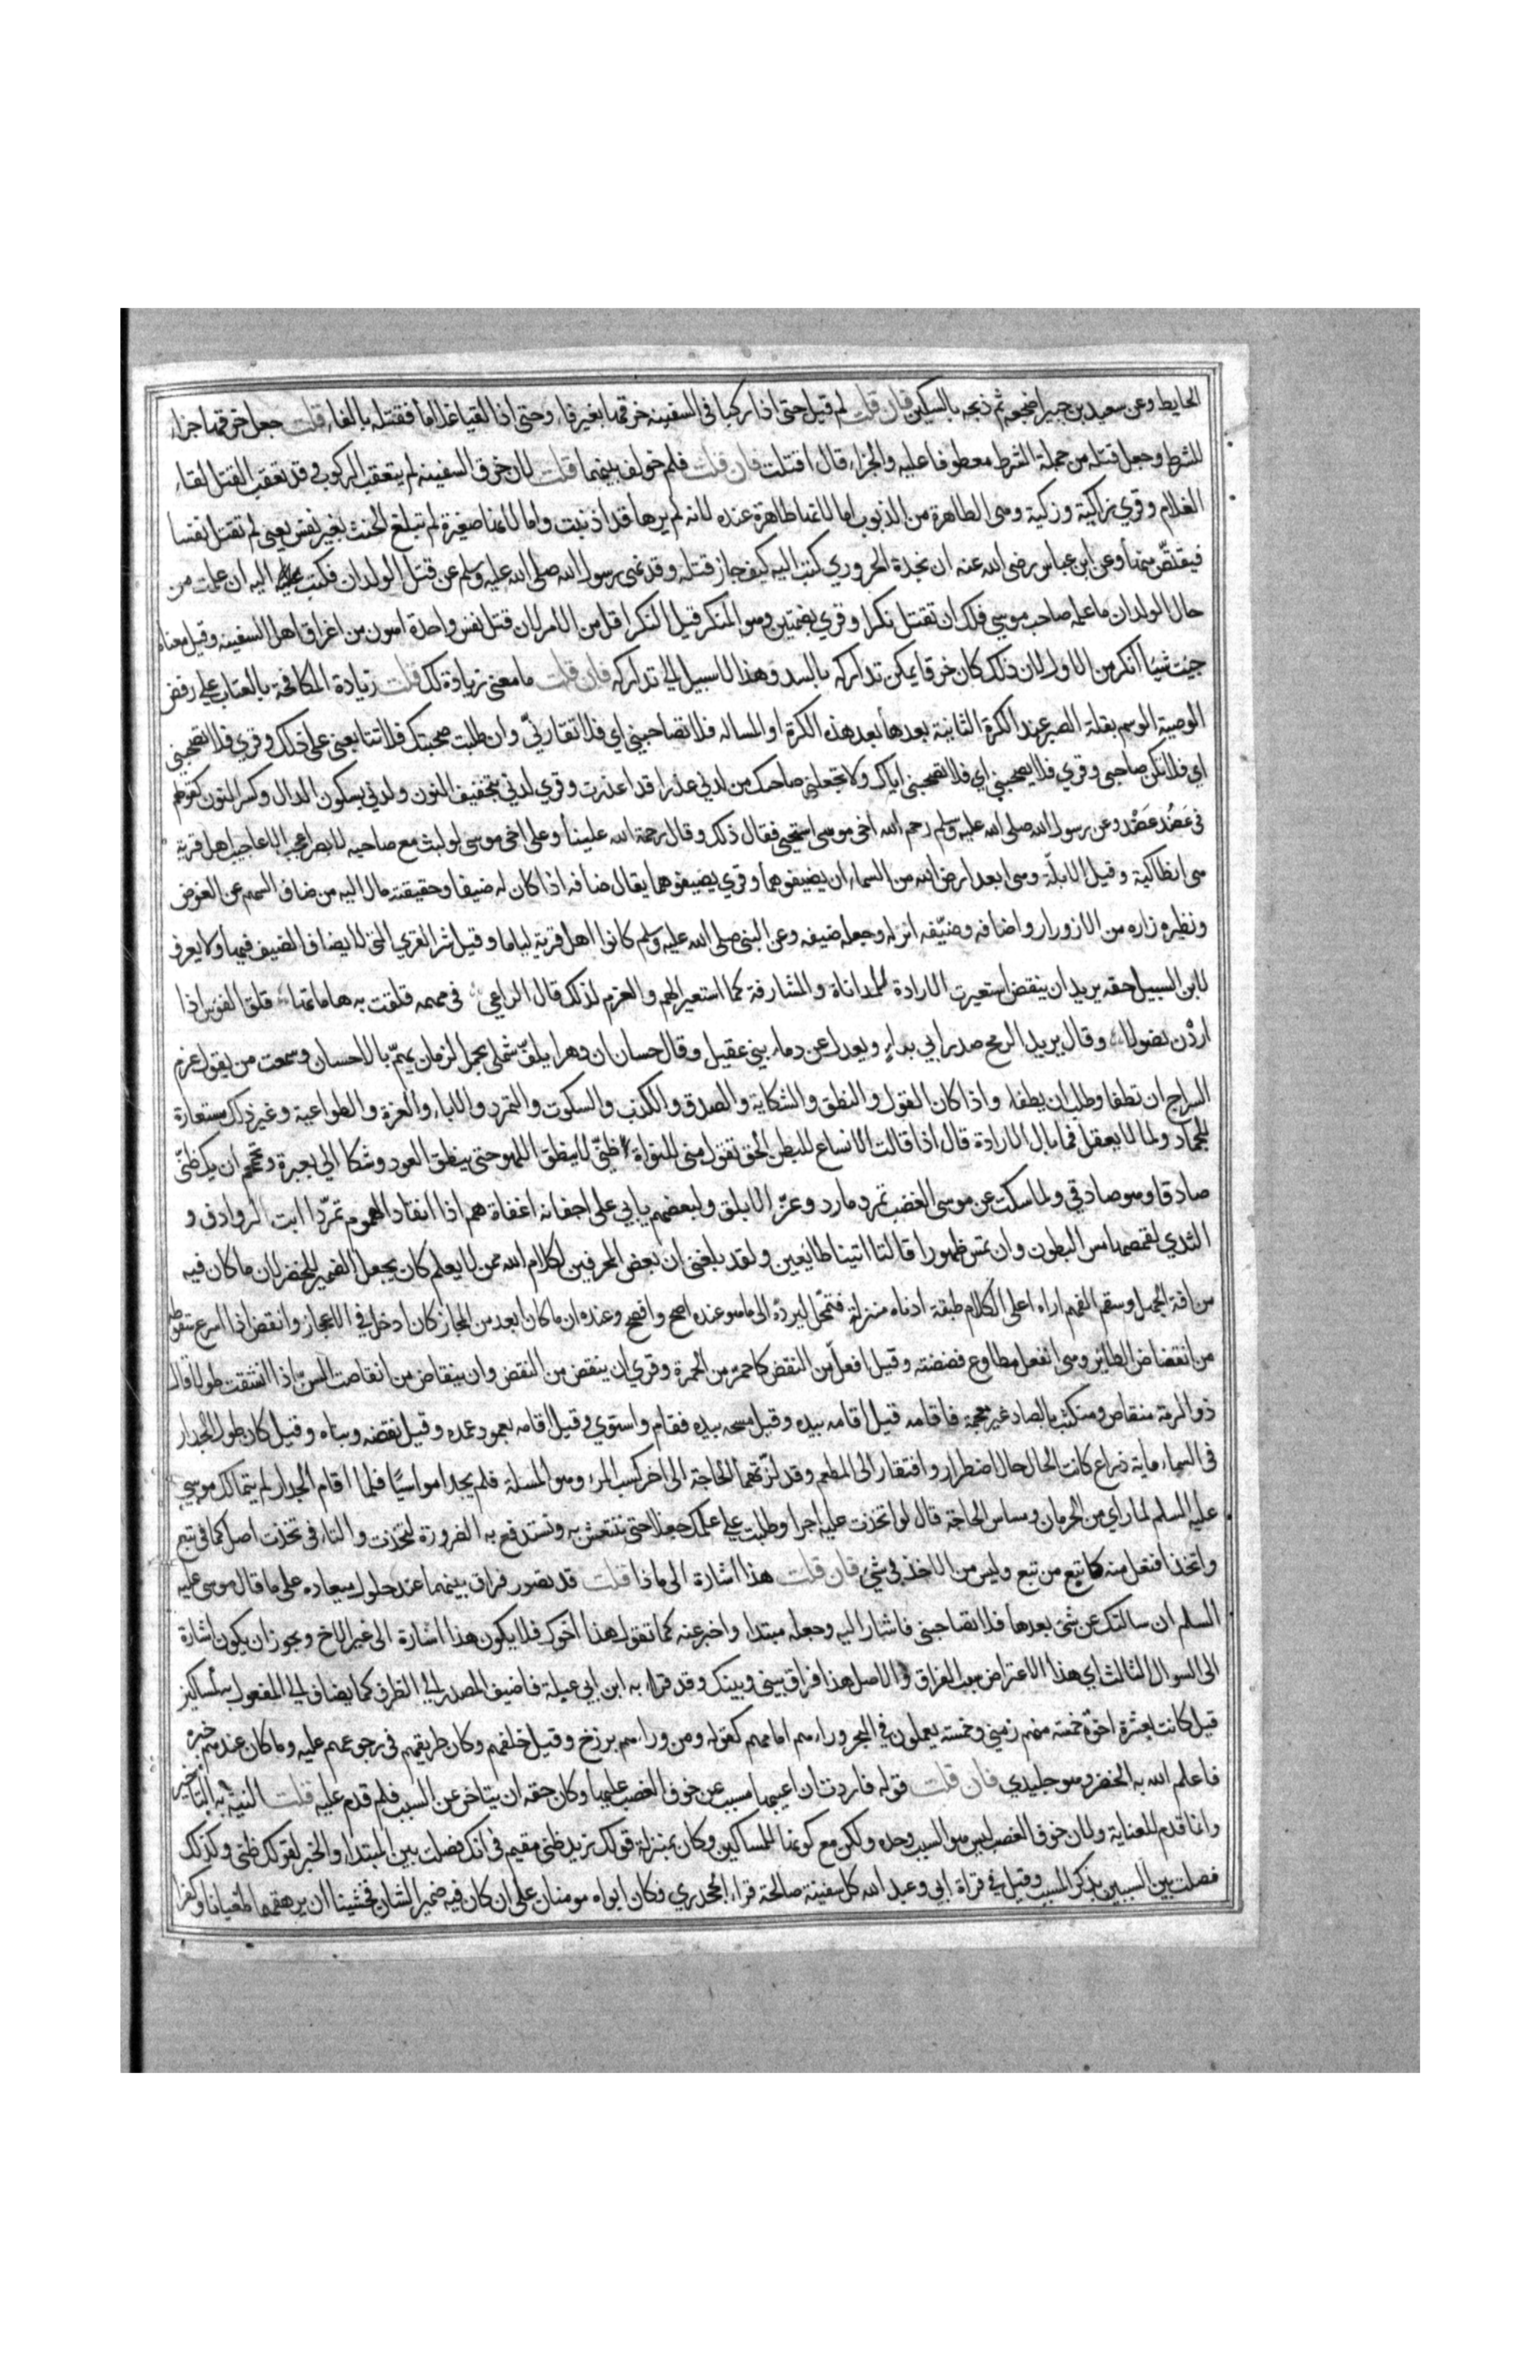 الحايط وعن سعيد بن جبير اضجعه ثم ذبحه بالسكين فان قلت لم قيل حتى اذا ركبا فى السفينه خرقها بغير فاء وحتى اذا لقيا غلاما فقتله بالفاء قلت جعل خرقها جزاء
للشرط وجعل قتله من جملة الشرط معطوفا عليه والجزاء قال اقتلت فان قلت فلم خولف بينهما قلت لان خرق السفينه لم يتعقب الركوب وقد تعقب القتل لقاء
الغلام وقري زاكية وزكية وهى الطاهرة من الذنوب اما لانها طاهرة عنده لانه لم يرها قد اذنبت واما لانها صغيرة لم تبلغ الحنث بغير نفس يعنى لم تقتل نفسا
فيقتصّ منها وعن ابن عباس رضى الله عنه ان نجدة الحروري كتب اليه كيف جاز قتله وقد نهى رسول الله صلى الله عليه وسلم عن قتل الولدان فكتب اليه ان علمت من
حال الولدان ما علمه صاحب موسى فلك ان تقتل نكرا وقري بضمتين وهو المنكر قيل النكر اقل من الامر لان قتل نفس واحدة اهون من اغراق اهل السفينه وقيل معناه
جيت شيا انكر من الاول لان ذلك كان خرقا يمكن تداركه بالسد وهذا لا سبيل الى تداركه فان قلت ما معنى زيادة لك قلت زيادة المكافحة بالعتاب على رفض
الوصية الوسم بقلة الصبر عند الكرة الثانية بعدها بعد هذه الكرة او المساله فلا تصاحبني اي فلا تقاربنّي وان طلبت صحبتك فلا تتابعنى على ذلك وقري فلا تصحبني
اي فلا تكن صاحبى وقري فلا تصحبني اي فلا تصحبنى اياك ولا تجعلني صاحبك من لدني عذرا قد اعذرت وقري لدني بتخفيف النون ولدني بسكون الدال وكسر النون كقولهم
فى عَضُد عَضْد وعن رسول الله صلى الله عليه وسلم رحم الله اخى موسى استحيى فقال ذلك وقال رحمة الله علينا وعلى اخى موسى لو لبث مع صاحبه لابصر اعجب الاعاجيب اهل قرية
هى انطاكية وقيل الابلّة وهى ابعد ارض الله من السماء ان يضيفوهما وقري يضيفوهما يقال ضافه اذا كان له ضيفا وحقيقته مال اليه من ضاف السهم عن الغرض
ونظيره زاره من الازورار واضافه وضيّفه انزله وجعله ضيفه وعن النبى صلى الله عليه وسلم كانوا اهل قرية لياما وقيل شر القري التى لا يضاف الضيف فيها ولا يعرف
لابن السبيل حقه يريد ان ينقض استعيرت الارادة للمداناة والمشارفة كما استعير الهم والعزم لذلك قال الراعي فى مهمه قلقت به هاماتها قلق الفوس اذا
اردْن نضولا وقال يريد الرمح صدر ابي براء ويعدل عن دماء بنى عقيل وقال حسان ان دهرا يلفّ شملى بجمل لزمان يهمّ بالاحسان وسمعت من يقول عزم
السراج ان تطفا وطلب ان يطفاء واذا كان القول والنطق والشكاية والصدق والكذب والسكوت والتمرد والاباء والعزة والطواعية وغير ذلك مستعارة
للجماد ولما لا يعقل فما بال الارادة قال اذا قالت الانساع للبطن الحق تقول سنى للنواة طنّى لا ينطق اللهو حتى ينطق العود وشكا الي بعبرة وتحمحم ان يك ظنّى
صادقا وهو صادقي ولما سكت عن موسى الغضب تمرد مارد وعزّ الابلق ولبعضهم يابى على اجفانه اغفاءة هم اذا انقاد الهموم تمرّدا ابت الروادف و
الثدي لقمصها مس البطون وان تمس ظهورا قالتا اتينا طايعين ولقد بلغنى ان بعض المحرفين لكلام الله ممن لا يعلم كان يجعل الضمير للخضر لان ما كان فيه
من افة الجهل وسقم الفهم اراه اعلى الكلام طبقة ادناه منزلة فتمحّل ليردّه الى ما هو عنده اصح وافصح وعنده ان ما كان ابعد من المجاز كان ادخل فى الاعجاز وانقض اذا اسرع سقوطه
من انقضاض الطائر وهى انفعل مطاوع قضضته وقيل افعلّ من النقض كاحمرّ من الحمرة وقري ان ينقض من النقض وان ينقاض من انقاصت السنّ اذا انشقت طولا قال
ذو الرمة منقاص ومنكثب بالصاد غير معجمة فاقامه قيل اقامه بيده وقيل مسحه بيده فقام واستوي وقيل اقامه بعمود عمده وقيل نقضه وبناه وقيل كان طول الجدار
فى السماء ماية ذراع كانت الحال حال اضطرار وافتقار الى المطعم وقد لزّتهما الحاجة الى اخر كسب المرء وهو المسئلة فلم يجدا مواسيًا فلما اقام الجدار لم يتمالك موسى
عليه السلم لما راي من الحرمان ومساس الحاجة قال لو اتخذت عليه اجرا وطلبت على عملك جعلا حتى ننتعش به ونستدفع به الضرورة لتخذت والتاء فى تخذت اصل كما فى تبع
واتخذ افتعل منه كاتبع من تبع وليس من الاخذ فى شئ فان قلت هذا اشارة الى ماذا قلت قد تصور فراق بينهما عند حلول ميعاده على ما قال موسى عليه
السلم ان سالتك عن شئ بعدها فلا تصاحبنى فاشار اليه وجعله مبتداء واخبر عنه كما تقول هذا اخوك فلا يكون هذا اشارة الى غير الاخ ويجوز ان يكون اشارة
الى السوال الثالث اي هذا الاعتراض سبب الفراق والاصل هذا فراق بينى وبينك وقد قراء به ابن ابي عبلة فاضيف المصدر الى الظرف كما يضاف الى المفعول به لمساكين
قيل كانت لعشرة اخوّة خمسة منهم زمنى وخمسة يعملون فى البحر وراءهم امامهم كقوله ومن وراءهم برزخ وقيل خلفهم وكان طريقهم فى رجوعهم عليه وما كان عندهم خبره
فاعلم الله به الخضر وهو جلندي فان قلت قوله فاردت ان اعيبها مسبب عن خوف الغصب عليها وكان حقه ان يتاخر عن السبب فلم قدم عليه قلت النية به التاخير
وانما قدم للعناية ولان خوف الغصب ليس هو السبب وحده ولكن مع كونها للمساكين وكان بمنزلة قولك زيد ظنى مقيم فى انك فصلت بين المبتداء والخبر لقولك ظنى وكذلك
فصلت بين السببين بذكر المسبب وقيل فى قراة ابي وعبد الله كل سفينة صالحة قراء الجحدري وكان ابواه مومنان على ان كان فيه ضمير الشان فخشينا ان يرهقهما طغيانا وكفرا